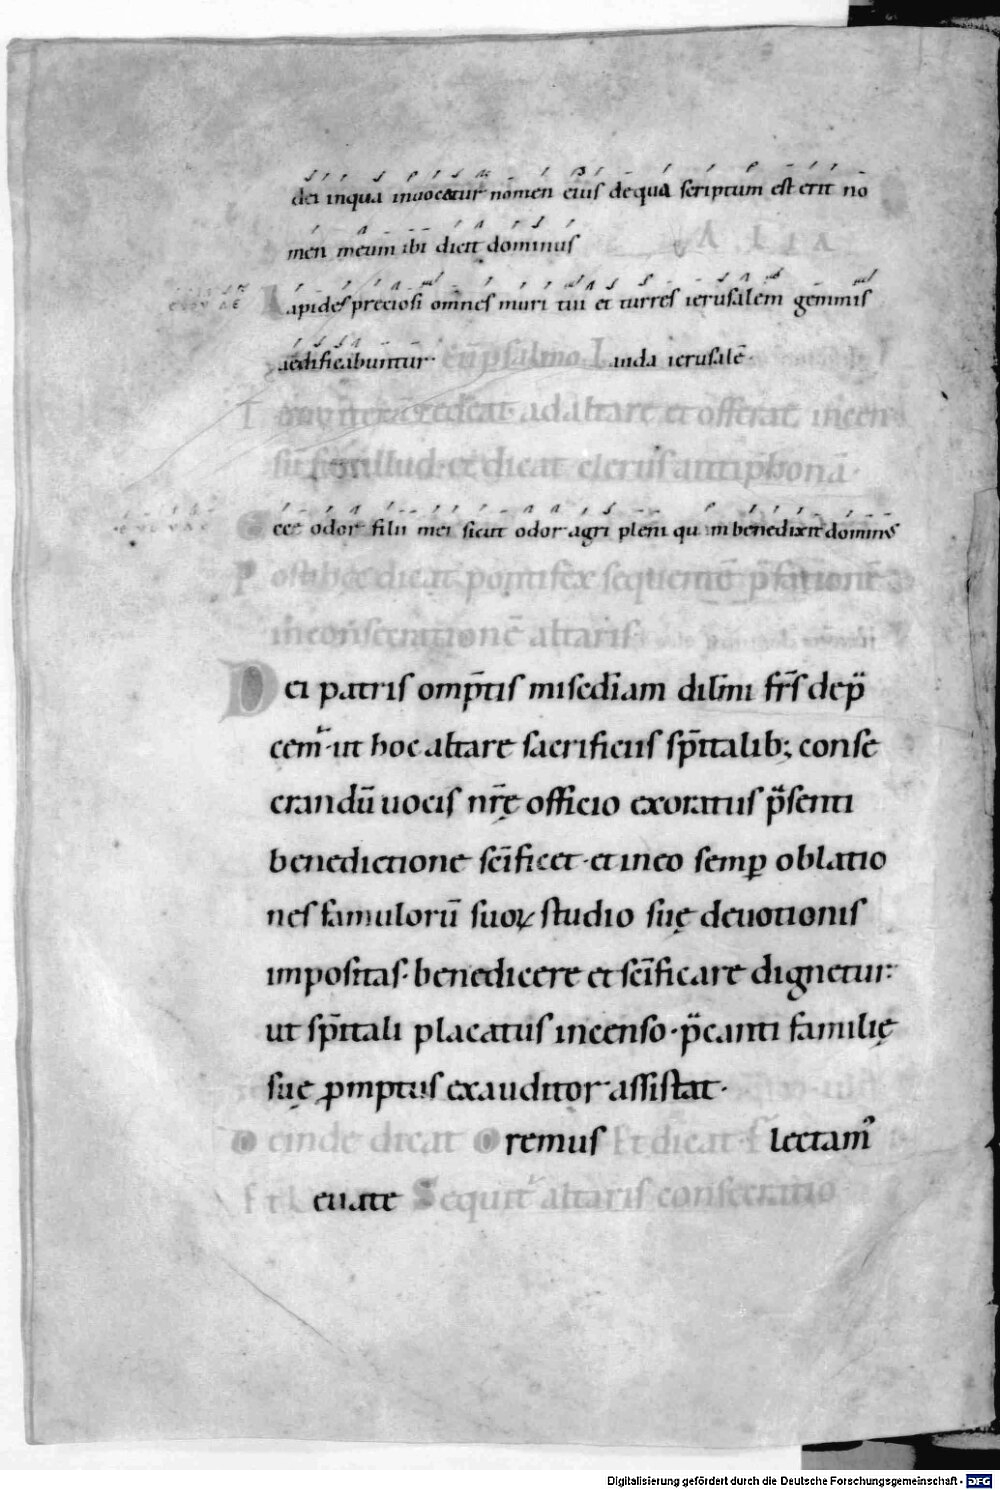 dei inqua inuocatur nomen eius dequa scriptum est erit no
men meum ibi dicit dominus
ALIA
EUOUAE Lapides preciosi omnes muri tui et turres ierusalem gemmis
aedificabuntur· cū psalmo Lauda ierusalē·
Tunc iterū redeat ad altare et offerat incen
sū super illud· et dicat clerus antiphonā·
EUOUAE Ecce odor filii mei sicut odor agri pleni quem benedixit dominus
Post hęc dicat pontifex sequentē p̄fationē
in consecrationē altaris·
Dei patris omp̄tis misedīam dilm̄i fr̄s dep̄
cem᷑· ut hoc altare sacrificiis sp̄italib; conse
crandū uocis nr̄ę officio exoratus p̄senti
benedictione sc̄ificet· et in eo semꝑ oblatio
nes famulorū suoꝝ studio suę deuotionis
impositas· benedicere et sc̄ificare dignetur·
ut sp̄itali placatus incenso· p̄canti familię
suę ꝓmptus exauditor assistat·
Deinde dicat Oremus Et dicat flectam᷒
Et Leuate Sequit᷑ altaris consecratio
Digitalisierung gefördert durch die Deutsche Forschungsgemeinschaft - DFG